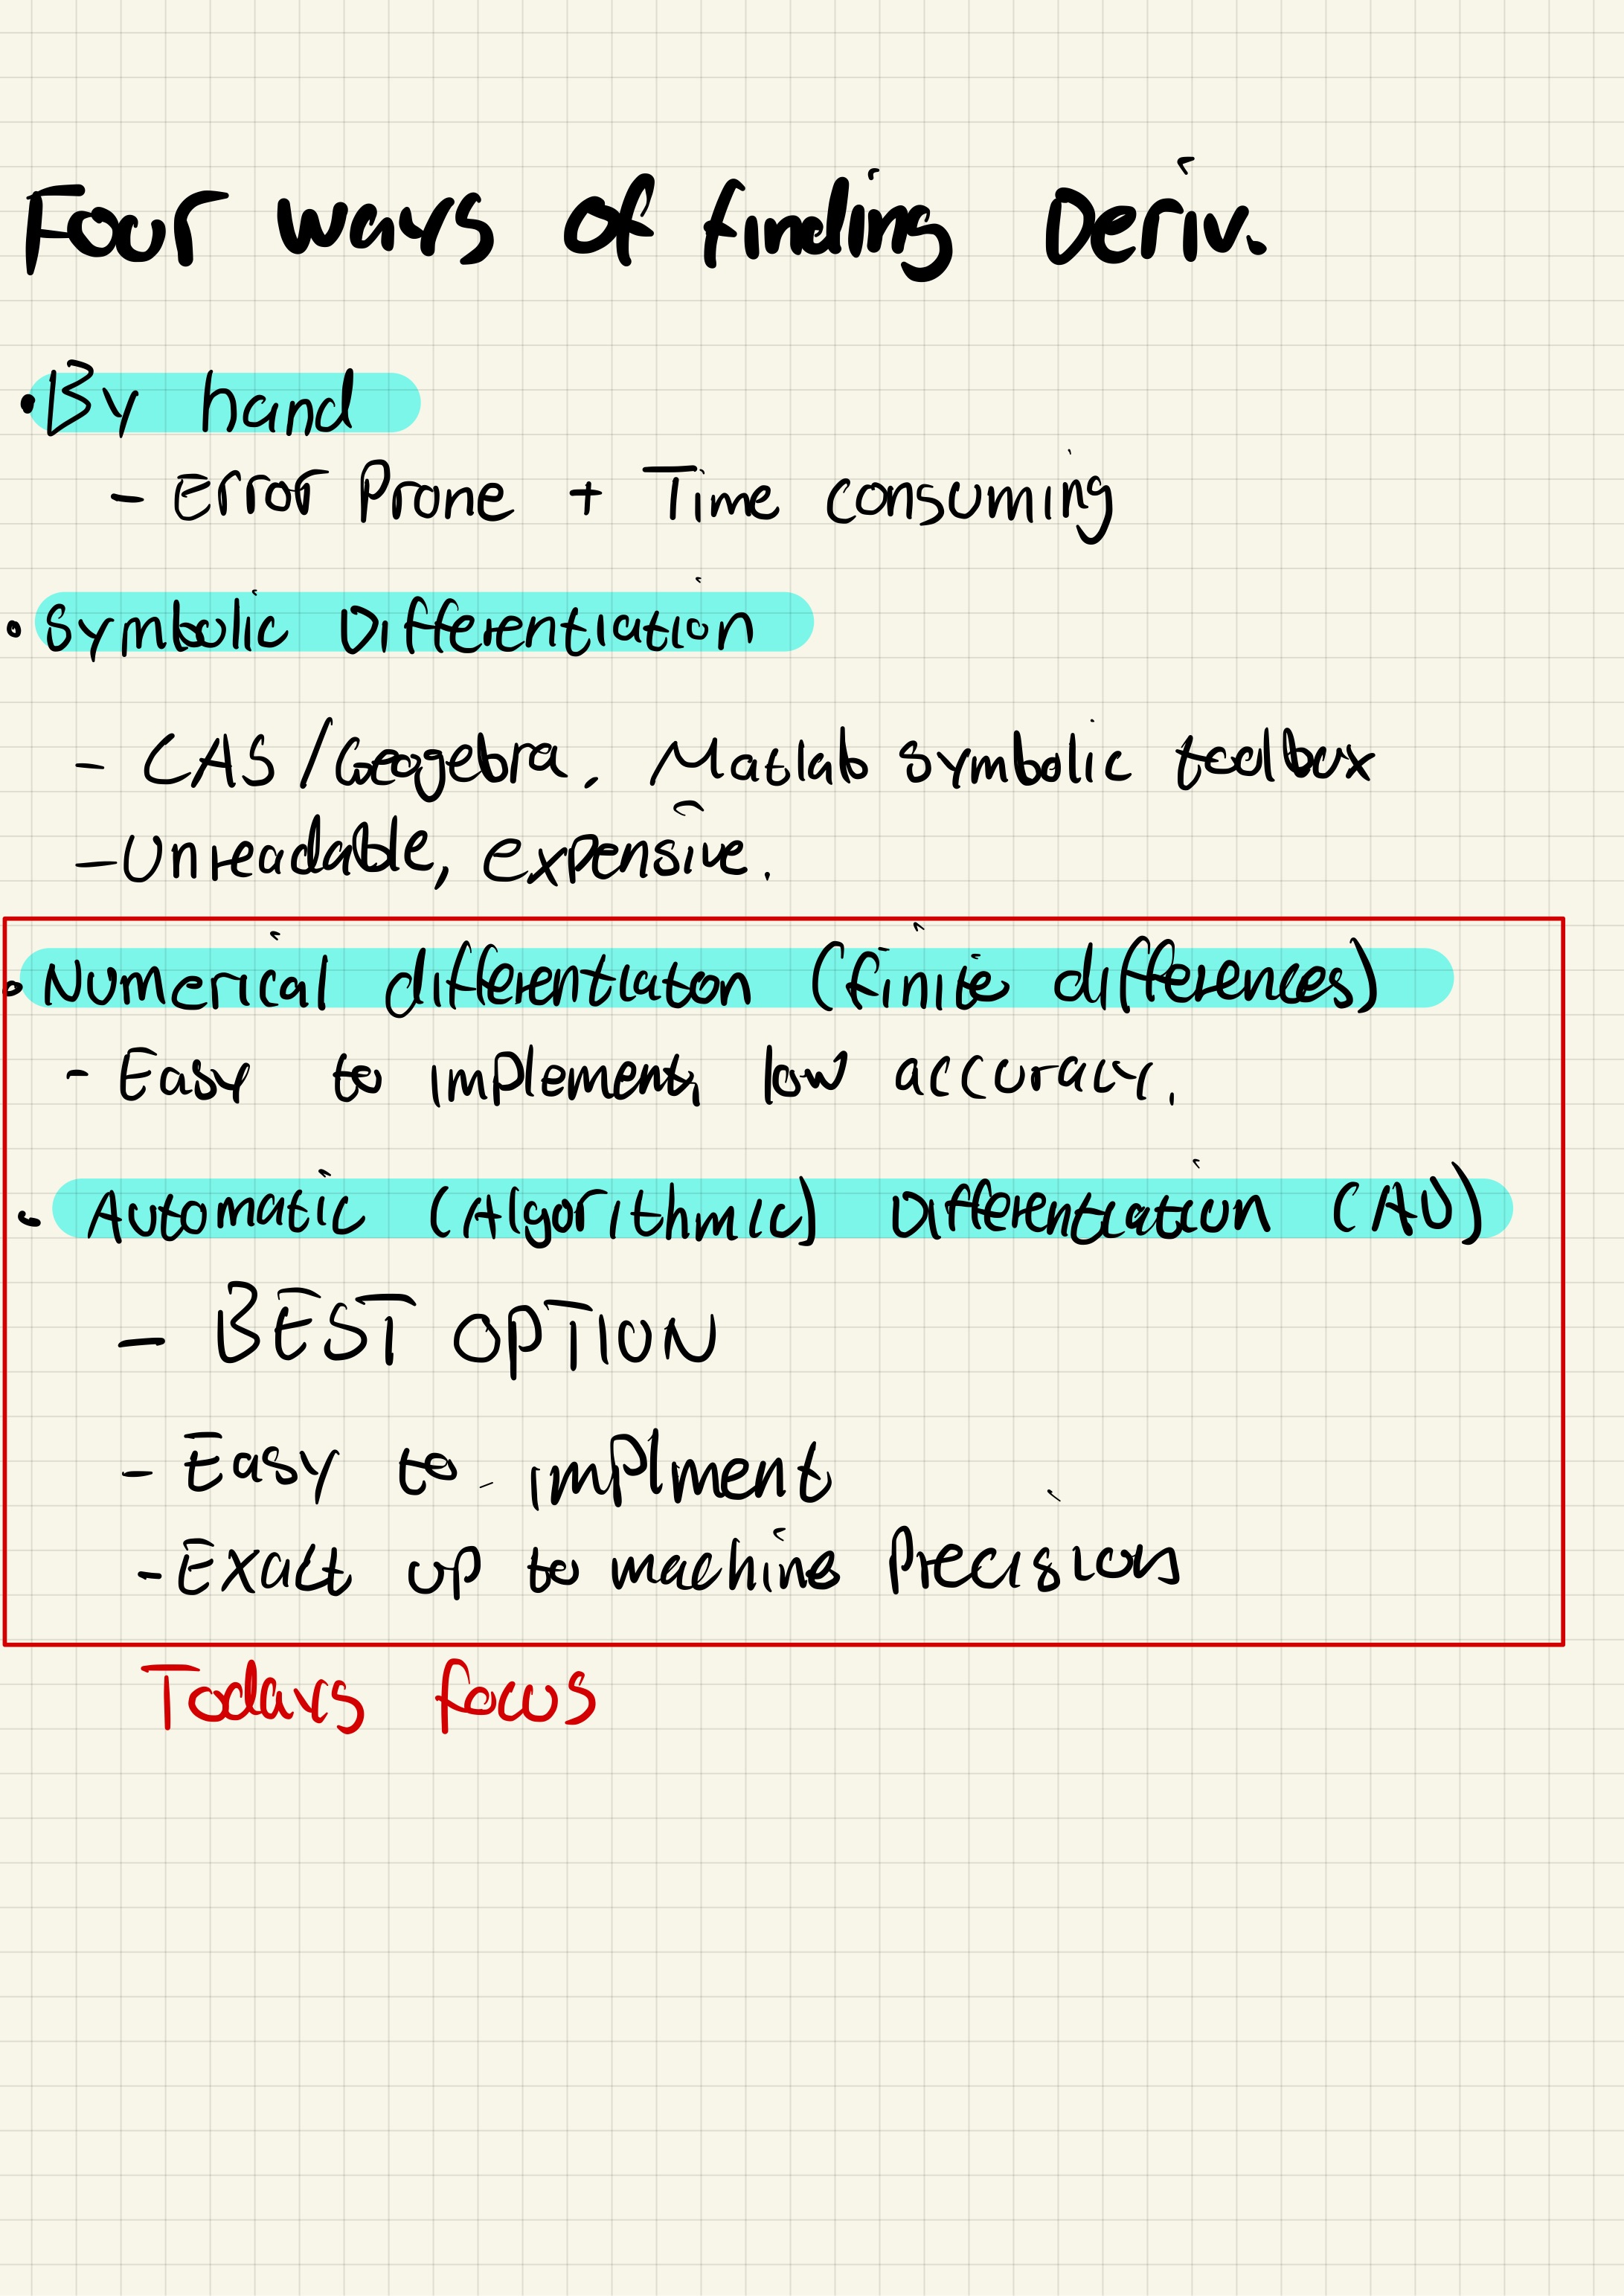 Four ways of finding Deriv.
• By hand
- Error Prone + Time consuming
• Symbolic Differentiation
- CAS/Geogebra, Matlab symbolic toolbox
- Unreadable, expensive.
• Numerical differentiaton (finite differences)
- Easy to implement, low accuracy.
• Automatic (Algorithmic) Differentiation (AD)
- BEST OPTION
- Easy to implment
- Exact up to machine Precision
Todays focus